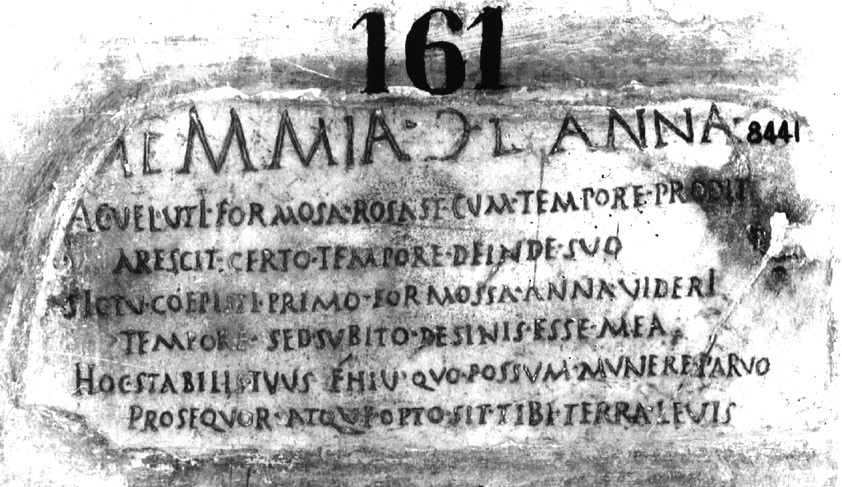 161
MEMMIA · Ɔ · L · ANNA · 8441
AC VELUTI · FORMOSA · ROSA SE · CUM · TEMPORE · PRODIT
ARESCIT · CERTO · TEMPORE · DEINDE · SUO
SIC TU · COEPISTI · PRIMO · FORMOSSA · ANNA · VIDERI
TEMPORE · SED · SUBITO · DESINIS · ESSE · MEA
HOC · STABILIS · TUUS · QUO · POSSUM · MUNERE · PARVO
PROSEQUOR · ATQUE OPTO · SIT · TIBI · TERRA · LEVIS